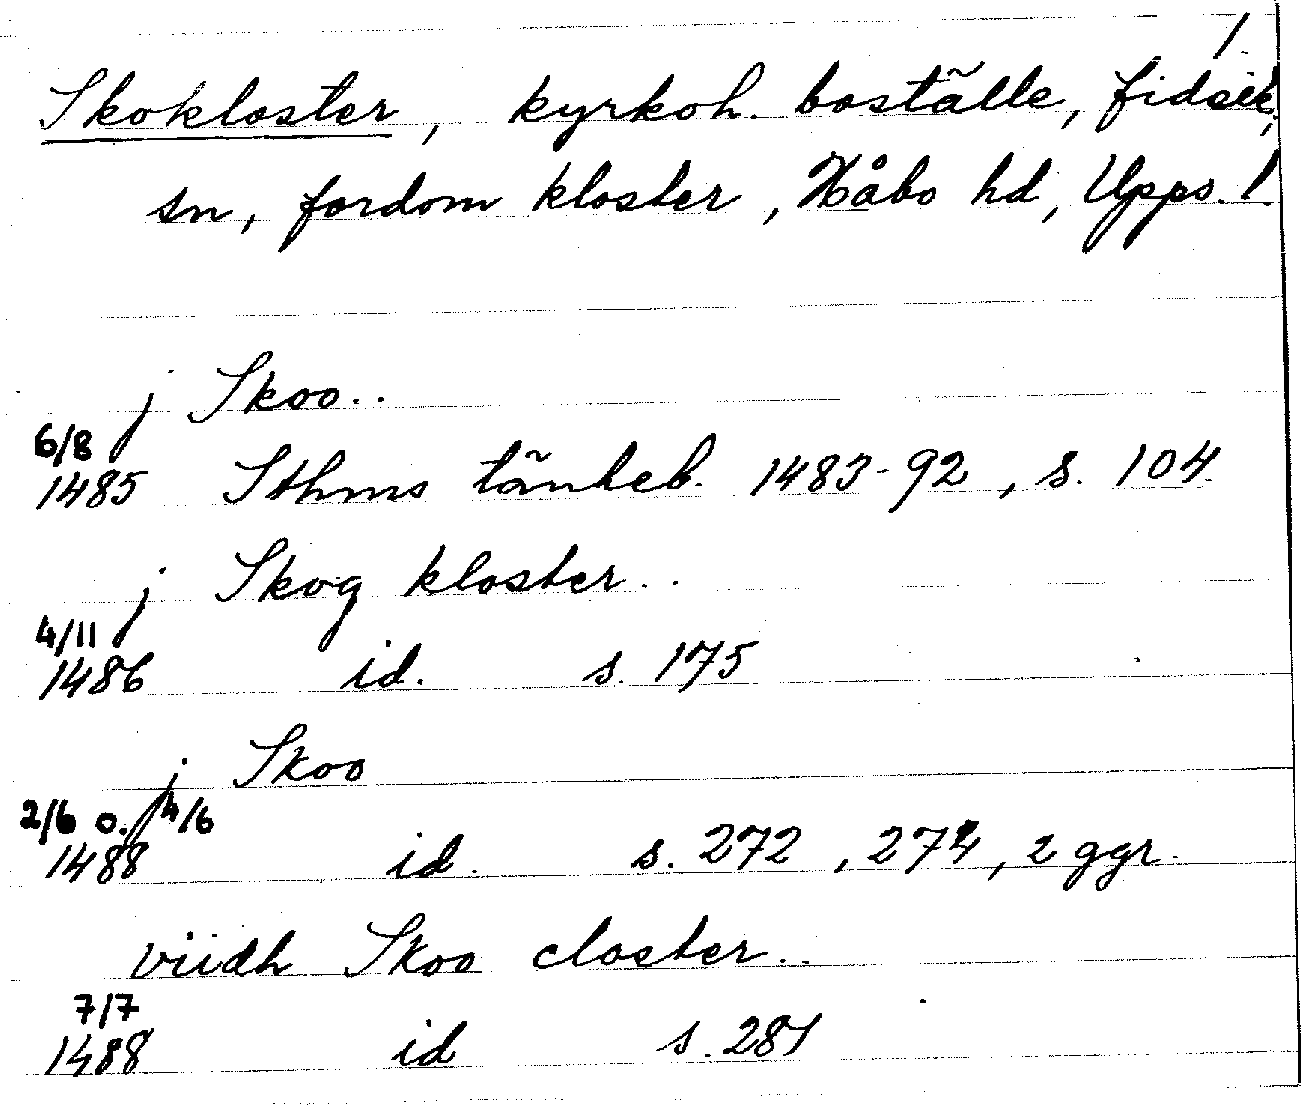 Skokloster, kyrkoh. boställe, fideik,
sn, fordom kloster, Håbo hd, Upps. l.
j Skoo..
6/8
1485 Sthms tänkeb. 1483-92, s. 104.
j Skog kloster..
4/11
1486 id. s. 175
j Skoo
2/6 o. 4/6
1488 id. s. 272, 274, 2 ggr.
viidh Skoo closter..
7/7
1488 id s. 281